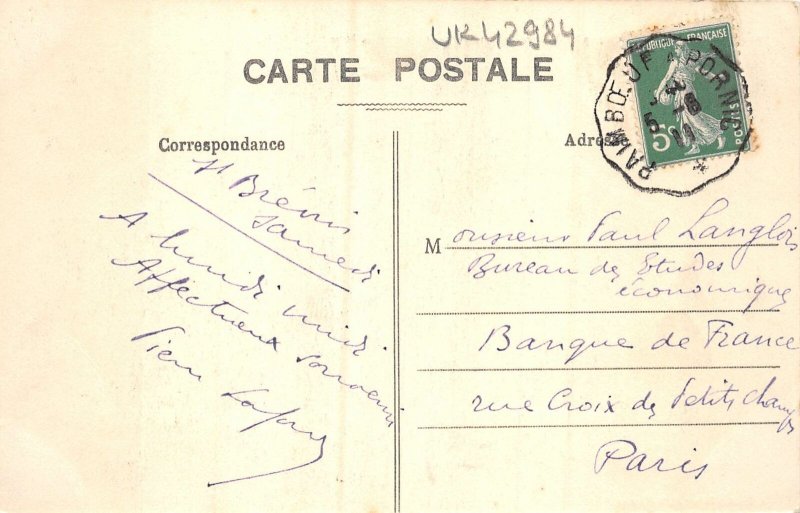 UK42984
CARTE POSTALE
Correspondance
St Brévin
Samedi
A lundi midi
Affectueux souvenir
Adresse
RÉPUBLIQUE FRANÇAISE
5c
POSTES
PAIMBŒUF A PORNIC
5 -8
11
Monsieur Paul Langlois
Bureau des Etudes
économiques
Banque de France
rue Croix des Petits champs
Paris